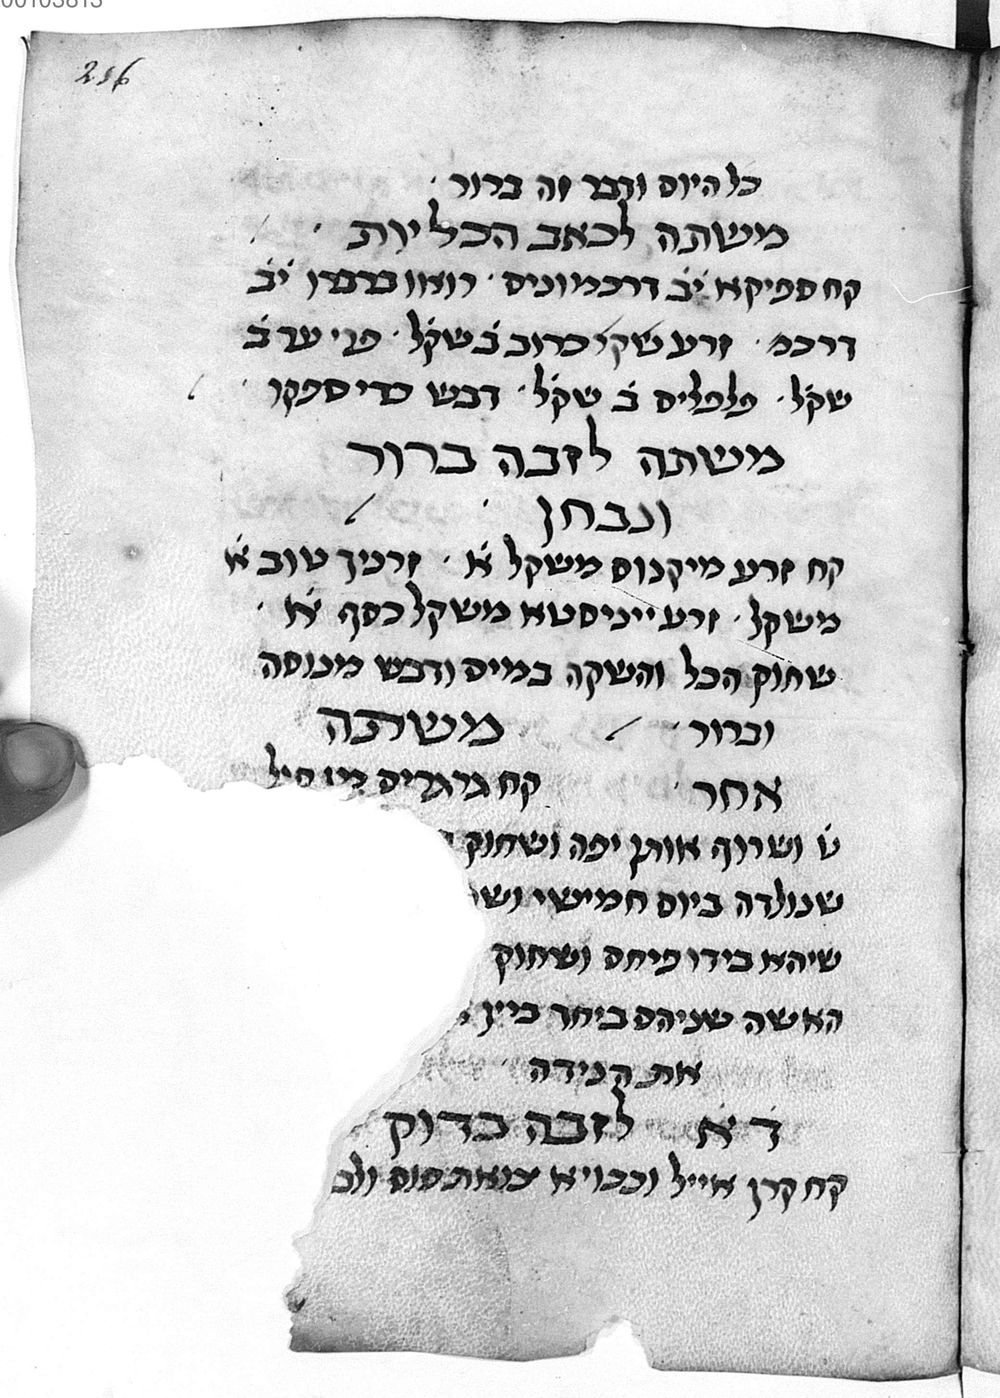 00103813
216
כל היום ודבר זה ברור ·
משתה לכאב הכליות ·
קח ספיקא י̇ב̇ דרכמוניס · רואו ברברו י̇ב̇
דרכמ · זרע שקי כרוב ב̇ שק̇ל · פני ער ב̇
שק̇ל · פלפלים ב̇ שק̇ל · דבש כדי ספקו ·
משתה לזבה ברור
ונבחן ·
קח זרע מיקנוס משקל א̇ · זרניך טוב א̇
משקל · זרע ייניסטא משקל כסף א̇ ·
שחוק הכל והשקה במים ודבש מנוסה
וברור · משתה
אחר · קח גרגרים
ט̇ ושרוף אותן יפה ושחוק
שנולדה ביום חמישי
שיהא בידו פיחם ושחוק
האשה שניהם ביחד ביין
את הנידה ·
ד̇ א̇ לזבה בדוק
קח קרן אייל וכבויא צואת סוס